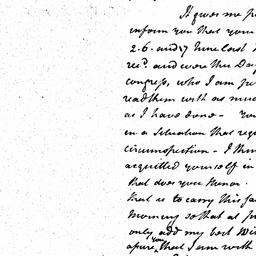 It gives me p
inform you that your
2. 6. and 17 June last
rec.d and were this Day
congress, who I am pe
read them with as muc
as I have done - You
in a Situation that requ
circumspection - I thin
acquitted yourself in
that does you Honor.
that is to carry this fa
morning so that at pr
only add my best Wis
assure you that I am with